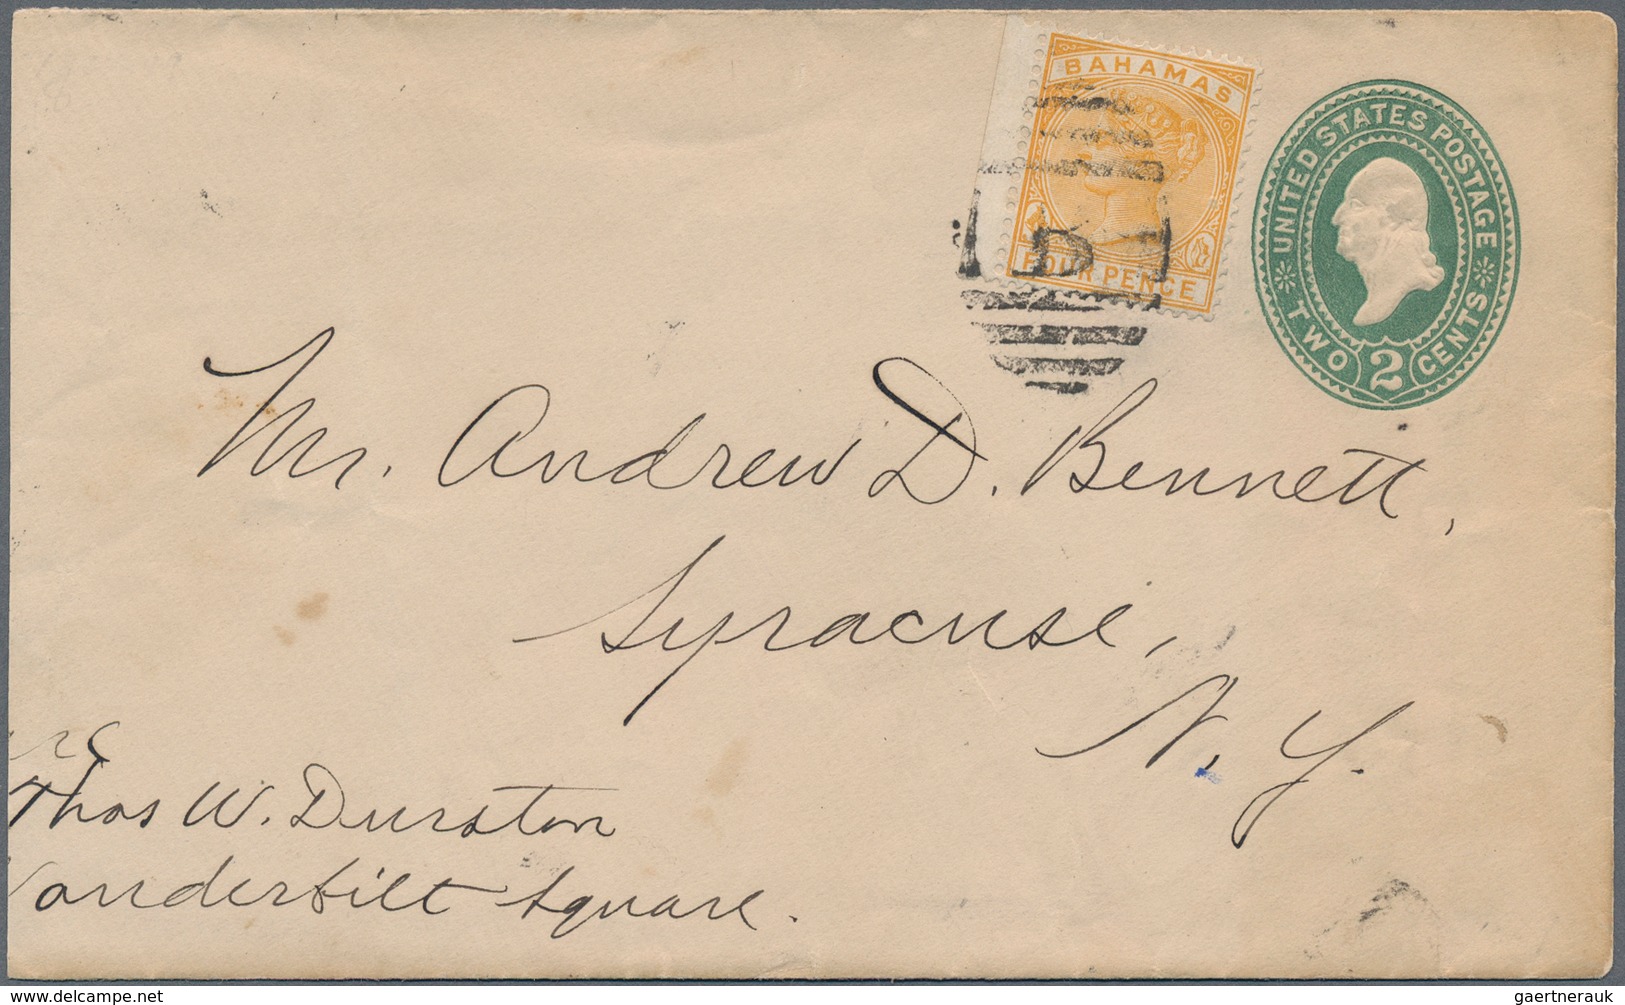 BAHAMAS
FOUR PENCE
B
UNITED STATES POSTAGE
TWO 2 CENTS
Mr. Andrew D. Bennett,
Syracuse,
N. Y.
Thos W. Durston
Vanderbilt Square.
delcampe.net
gaertnerauk